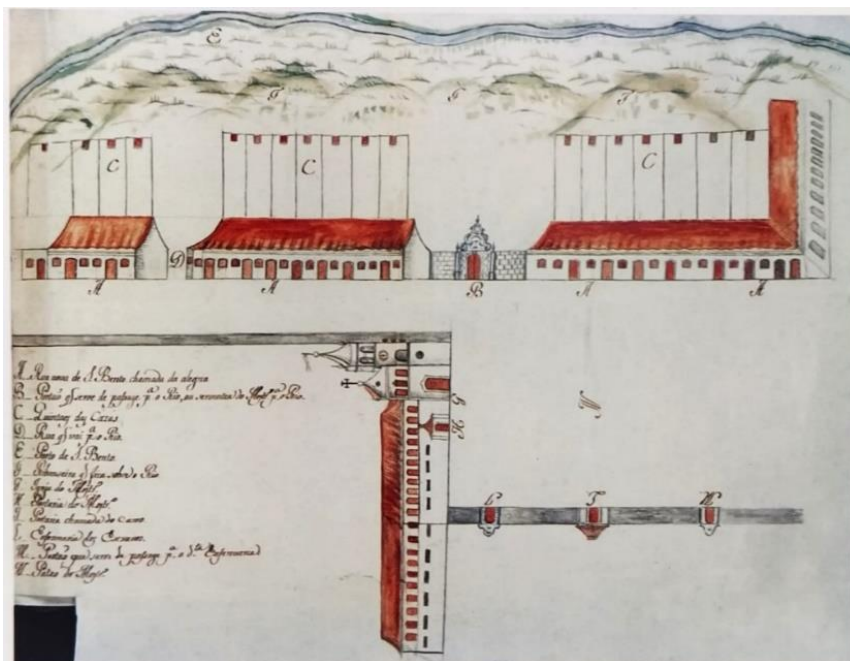 E
F F F
C C C
D
A A B A A
A Rua nova de S. Bento chamada da alegria
B Portaõ q̃ serve de passage p.ª o Rio, ou serventia do Mostr.º p.ª o Rio.
C Quintaes das Cazas
D Rua q̃ vai p.ª o Rio.
E Porto de S. Bento
q̃ fica sobre o Rio
G Igreja do Mostr.º
H Portaria do Mostr.º
Portaria chamada do carro
L Enfermaria dos Escravos.
M Portaõ que serve de passage p.ª a d.ª Enfermaria
N Patio do Mostr.º
G
H
N
L M